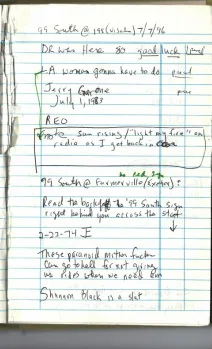 99 South @ 198 (Visalia) 7/7/96
DR was Here so good luck
A woman gonna have to do
Jerry
July 1, 1983
REO
sun rising / "light my fire" on
radio as I get back in
99 South @ Farmersville (Exeter):
Read the back of the "99 South sign
right behind you across the
2-22-74
These paranoid mother fuckers
can go to hell for not giving
us rides when we need em
Shannon Black is a slut